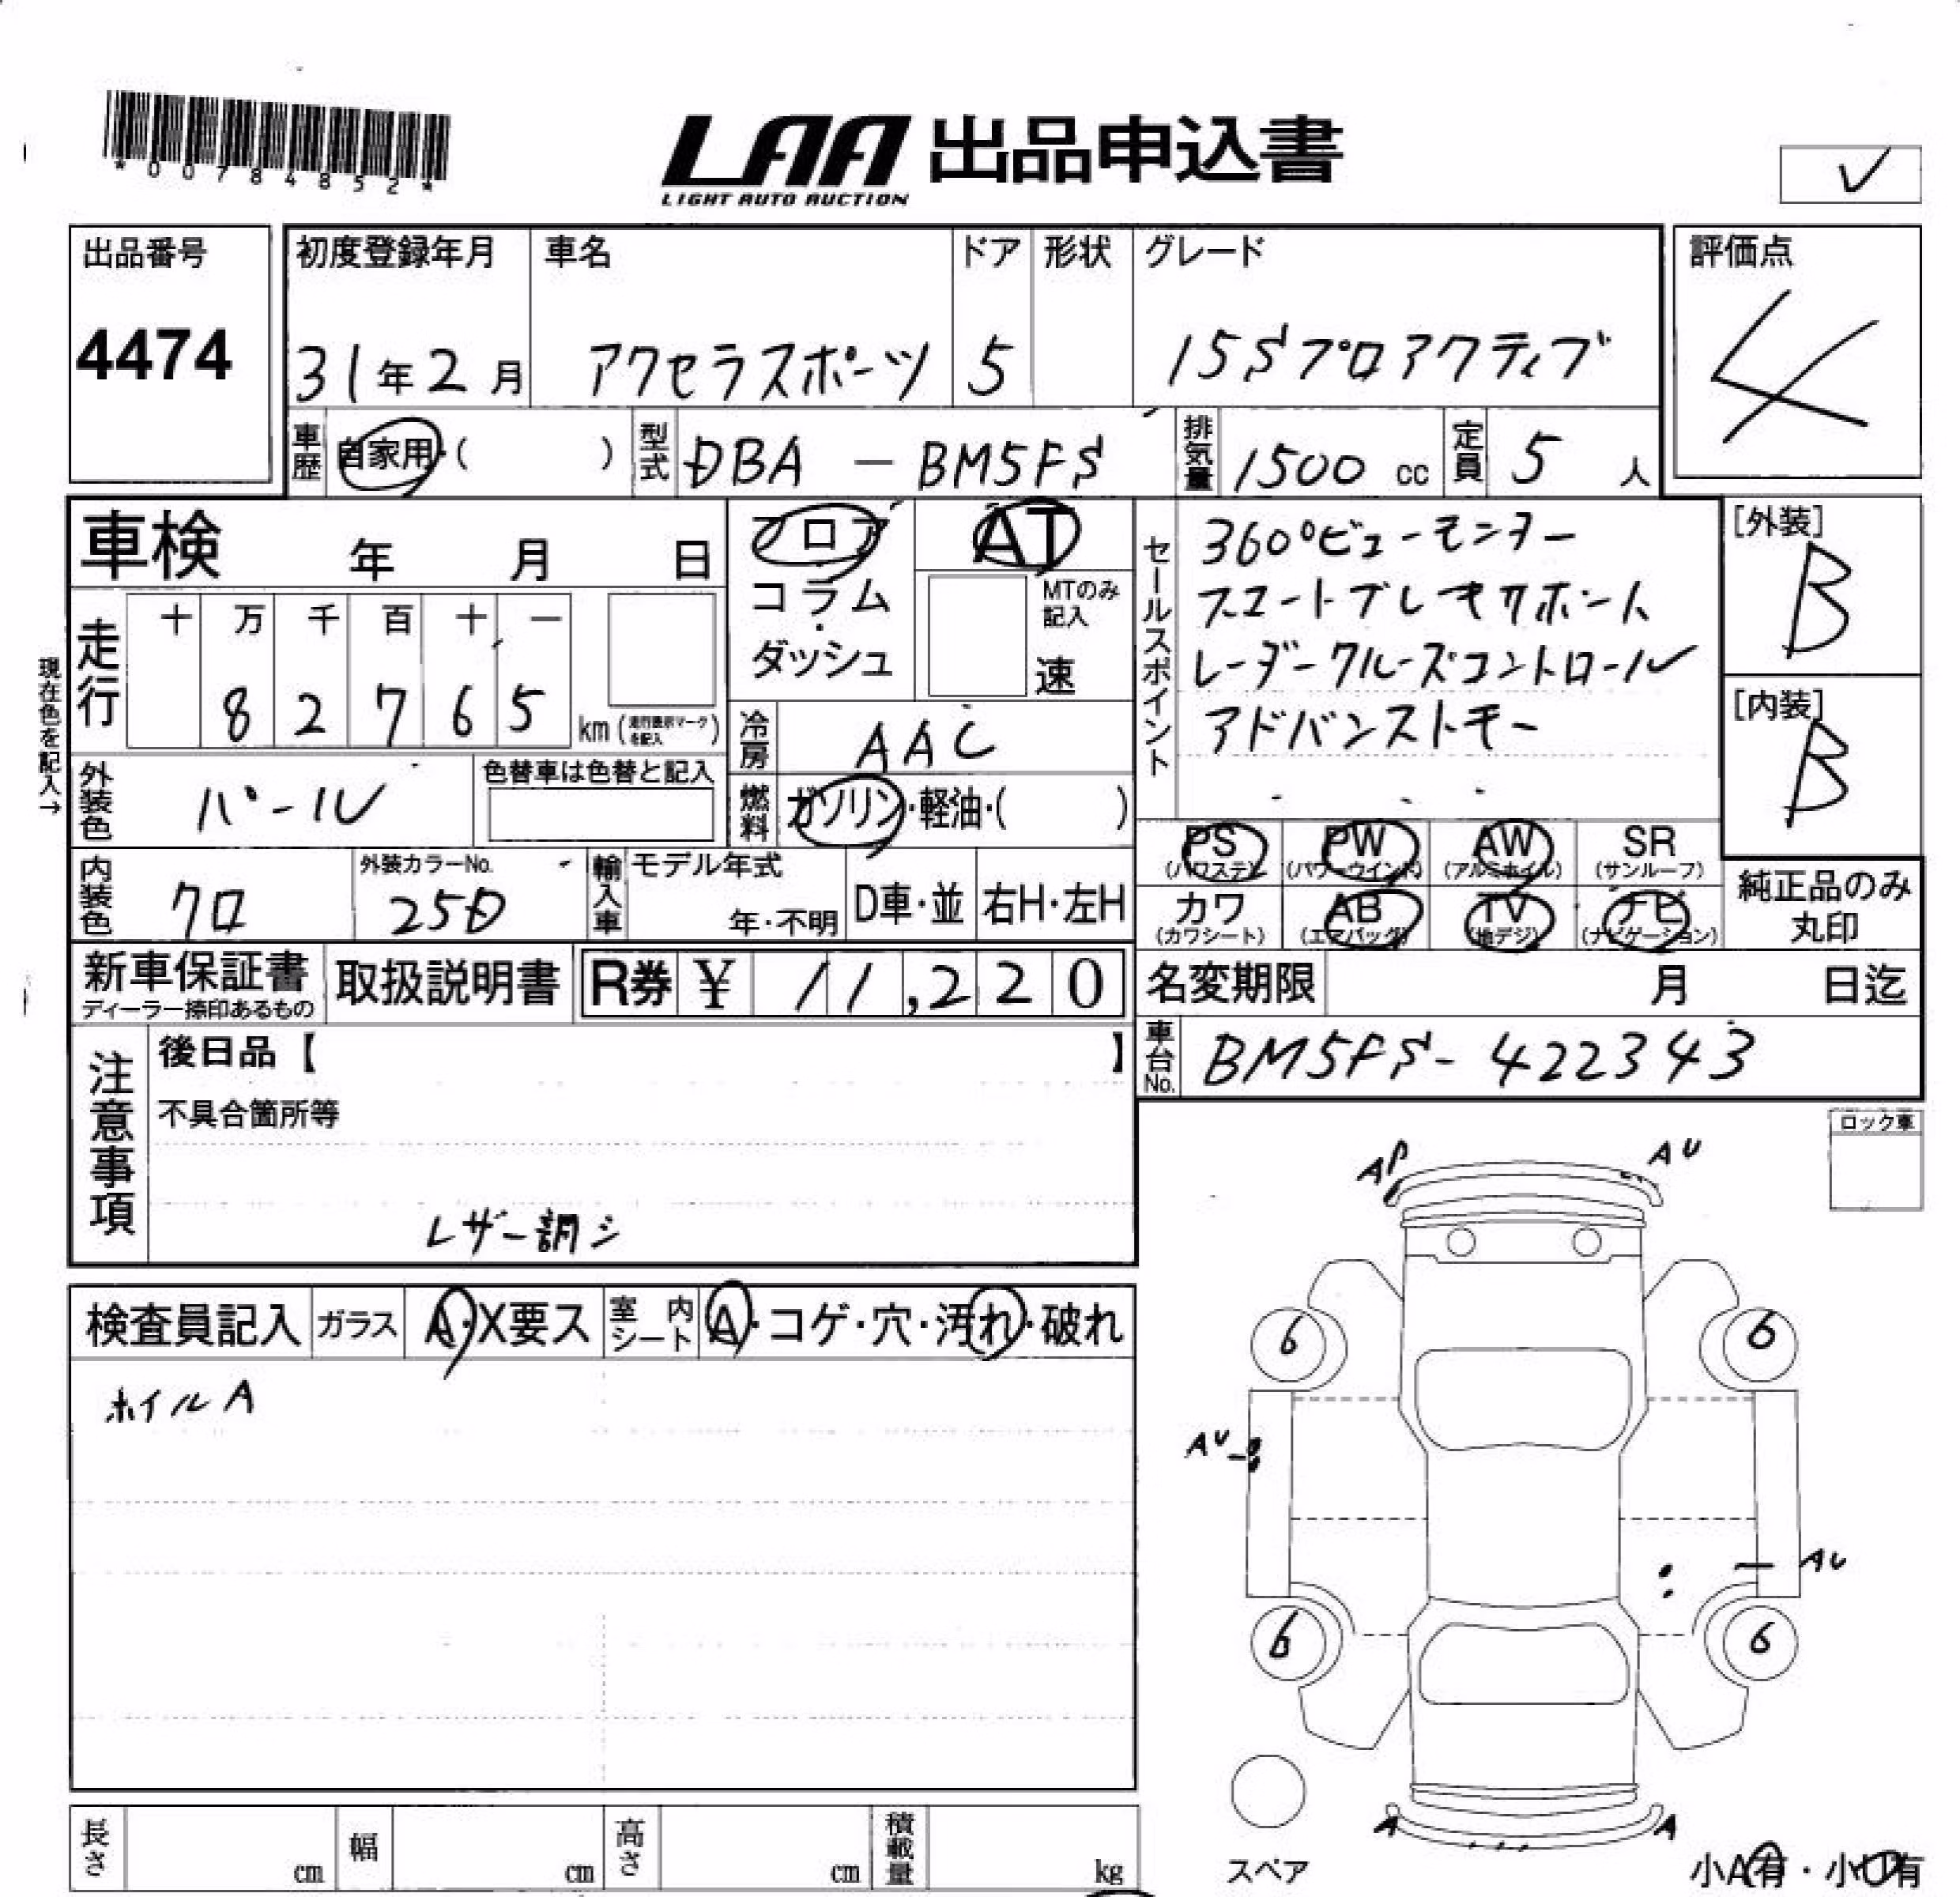 *00784852*
LAA 出品申込書
LIGHT AUTO AUCTION
出品番号
4474
初度登録年月
31年2月
車名
アクセラスポーツ
ドア
5
形状
グレード
15Sプロアクティブ
評価点
4
車歴
自家用・( )
型式
DBA － BM5FS
排気量
1500 cc
定員
5 人
車検 年 月 日
フロア
コラム
・
ダッシュ
AT
MTのみ
記入
速
セールスポイント
360°ビューモニター
スマートブレーキサポート
レーダークルーズコントロール
アドバンストキー
[外装]
B
[内装]
B
現在色を記入→
走行
十 万 千 百 十 一
8 2 7 6 5
km (走行表示マークを記入)
冷房
AAC
外装色
パール
色替車は色替と記入
燃料
ガソリン・軽油・( )
PS
(パワステ)
PW
(パワーウインド)
AW
(アルミホイル)
SR
(サンルーフ)
内装色
クロ
外装カラーNo.
25D
輸入車
モデル年式
年・不明
D車・並
右H・左H
カワ
(カワシート)
AB
(エアバッグ)
TV
(地デジ)
ナビ
(ナビゲーション)
純正品のみ
丸印
新車保証書
ディーラー捺印あるもの
取扱説明書
R券 ¥ 11,220
名変期限 月 日迄
車台No.
BM5FS-422343
注意事項
後日品【 】
不具合箇所等
レザー調シ
ロック車
検査員記入
ガラス
A・X要ス
室内シート
A・コゲ・穴・汚れ・破れ
ホイルA
AP
AU
6
6
AU
AU
6
6
A
A
スペア
小A有・小U有
長さ cm
幅 cm
高さ cm
積載量 kg